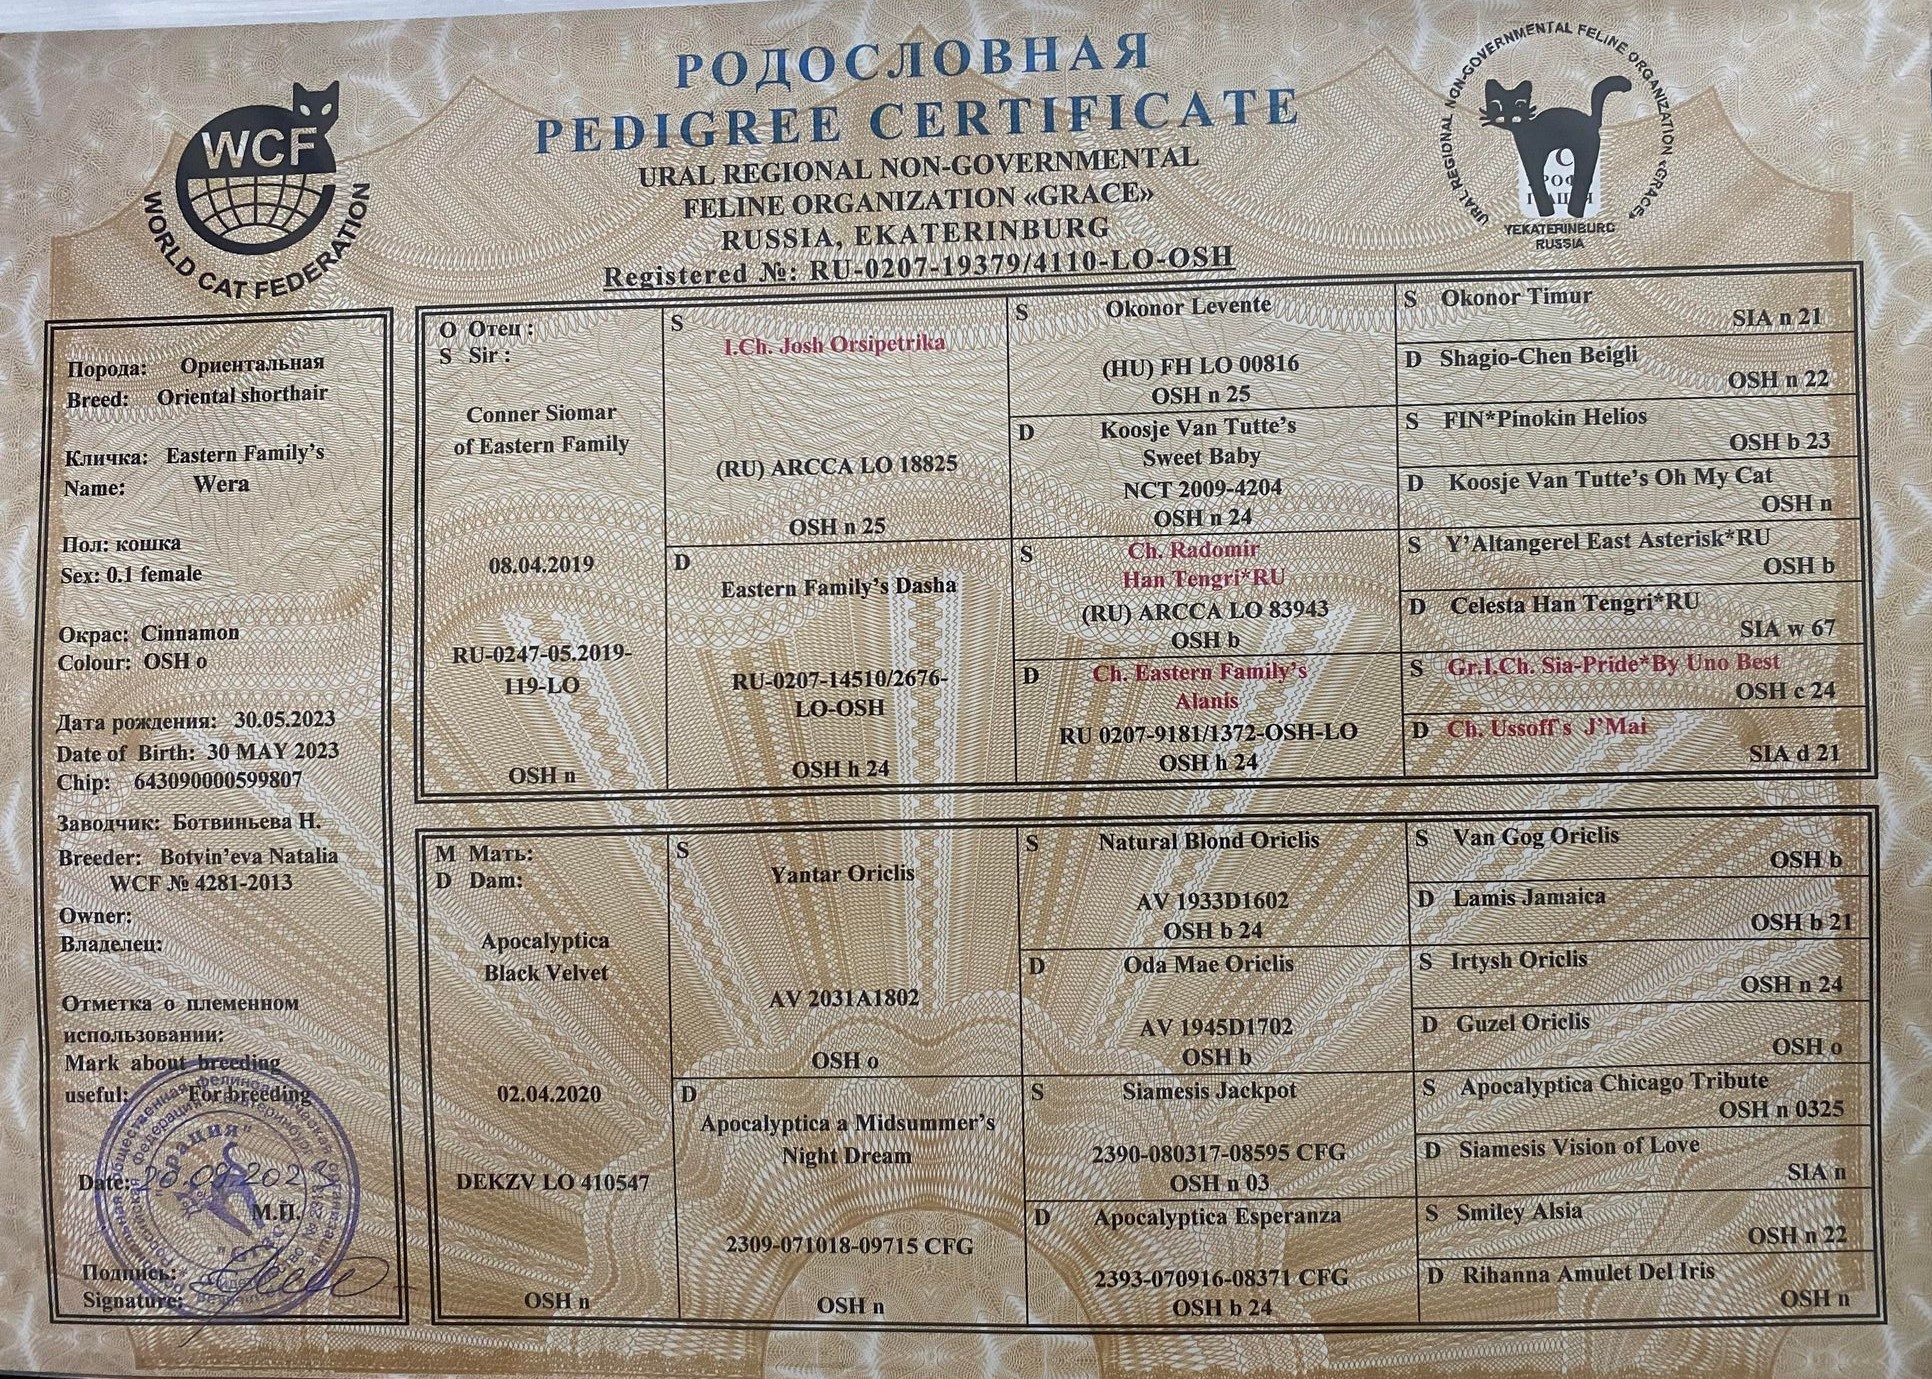 РОДОСЛОВНАЯ
PEDIGREE CERTIFICATE
URAL REGIONAL NON-GOVERNMENTAL
FELINE ORGANIZATION «GRACE»
RUSSIA, EKATERINBURG
Registered №: RU-0207-19379/4110-LO-OSH
WCF
WORLD CAT FEDERATION
URAL REGIONAL NON-GOVERNMENTAL FELINE ORGANIZATION «GRACE»
YEKATERINBURG
RUSSIA
Порода: Ориентальная
Breed: Oriental shorthair
Кличка: Eastern Family's
Name: Wera
Пол: кошка
Sex: 0.1 female
Окрас: Cinnamon
Colour: OSH o
Дата рождения: 30.05.2023
Date of Birth: 30 MAY 2023
Chip: 643090000599807
Заводчик: Ботвиньева Н.
Breeder: Botvin'eva Natalia
WCF № 4281-2013
Owner:
Владелец:
Отметка о племенном
использовании:
Mark about breeding
useful: For breeding
Date:
М.П.
Подпись:
Signature:
О Отец :
S Sir :
Conner Siomar
of Eastern Family
08.04.2019
RU-0247-05.2019-
119-LO
OSH n
S
I.Ch. Josh Orsipetrika
(RU) ARCCA LO 18825
OSH n 25
D
Eastern Family's Dasha
RU-0207-14510/2676-
LO-OSH
OSH h 24
S Okonor Levente
(HU) FH LO 00816
OSH n 25
D Koosje Van Tutte's
Sweet Baby
NCT 2009-4204
OSH n 24
S Ch. Radomir
Han Tengri*RU
(RU) ARCCA LO 83943
OSH b
D Ch. Eastern Family's
Alanis
RU 0207-9181/1372-OSH-LO
OSH h 24
S Okonor Timur
SIA n 21
D Shagio-Chen Beigli
OSH n 22
S FIN*Pinokin Helios
OSH b 23
D Koosje Van Tutte's Oh My Cat
OSH n
S Y'Altangerel East Asterisk*RU
OSH b
D Celesta Han Tengri*RU
SIA w 67
S Gr.I.Ch. Sia-Pride*By Uno Best
OSH c 24
D Ch. Ussoff s J'Mai
SIA d 21
М Мать:
D Dam:
Apocalyptica
Black Velvet
02.04.2020
DEKZV LO 410547
OSH n
S
Yantar Oriclis
AV 2031A1802
OSH o
D
Apocalyptica a Midsummer's
Night Dream
2309-071018-09715 CFG
OSH n
S Natural Blond Oriclis
AV 1933D1602
OSH b 24
D Oda Mae Oriclis
AV 1945D1702
OSH b
S Siamesis Jackpot
2390-080317-08595 CFG
OSH n 03
D Apocalyptica Esperanza
2393-070916-08371 CFG
OSH b 24
S Van Gog Oriclis
OSH b
D Lamis Jamaica
OSH b 21
S Irtysh Oriclis
OSH n 24
D Guzel Oriclis
OSH o
S Apocalyptica Chicago Tribute
OSH n 0325
D Siamesis Vision of Love
SIA n
S Smiley Alsia
OSH n 22
D Rihanna Amulet Del Iris
OSH n